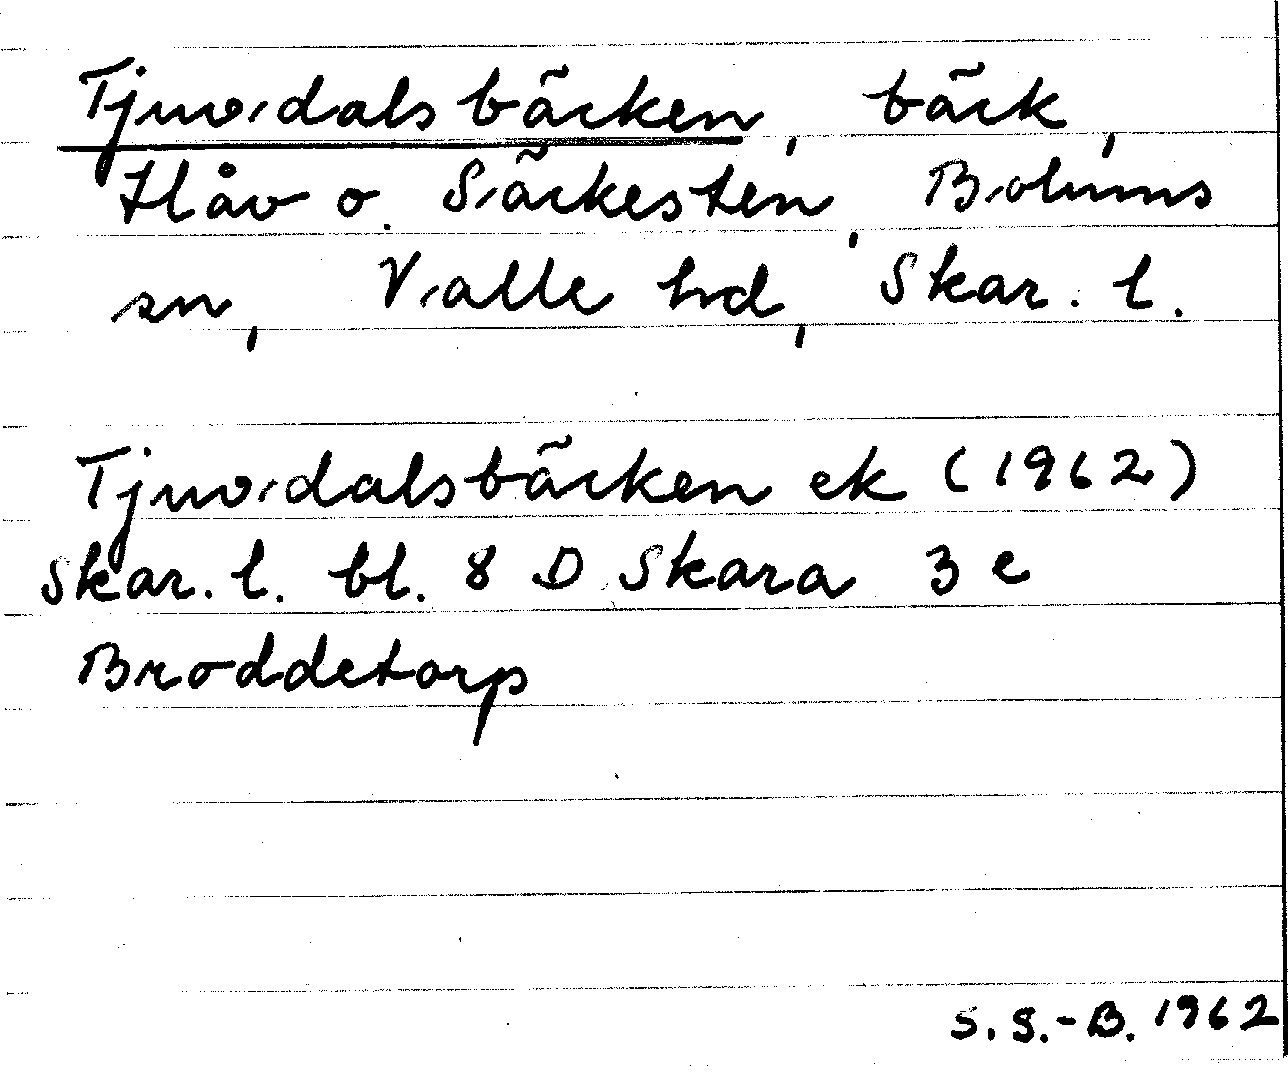 Tjuvdalsbäcken, bäck,
Håv o. Säckesten, Bolums
sn, Valle hd, Skar. l.
Tjuvdalsbäcken ek (1962)
Skar. l. bl. 8 D Skara 3 e
Broddetorp
S. S.-B. 1962